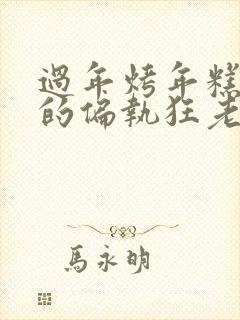 過年烤年糕
的偏執狂老
馬永明